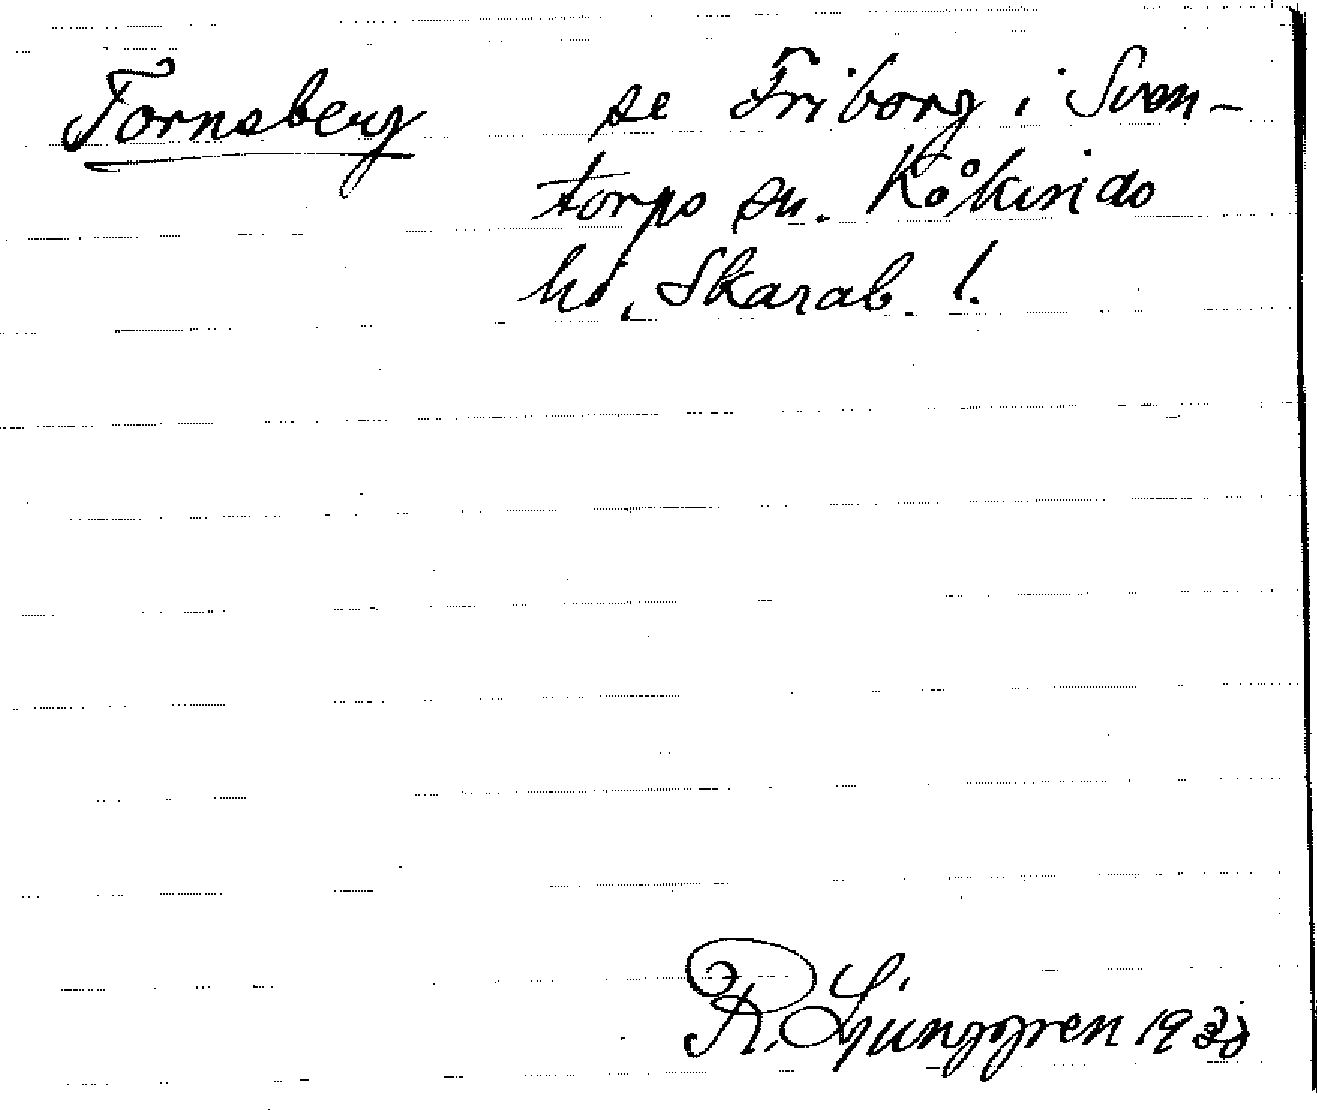 Tornsberg se Friborg i Sven-
torps sn. Kåkinds
hd, Skarab. l.
R. Ljunggren